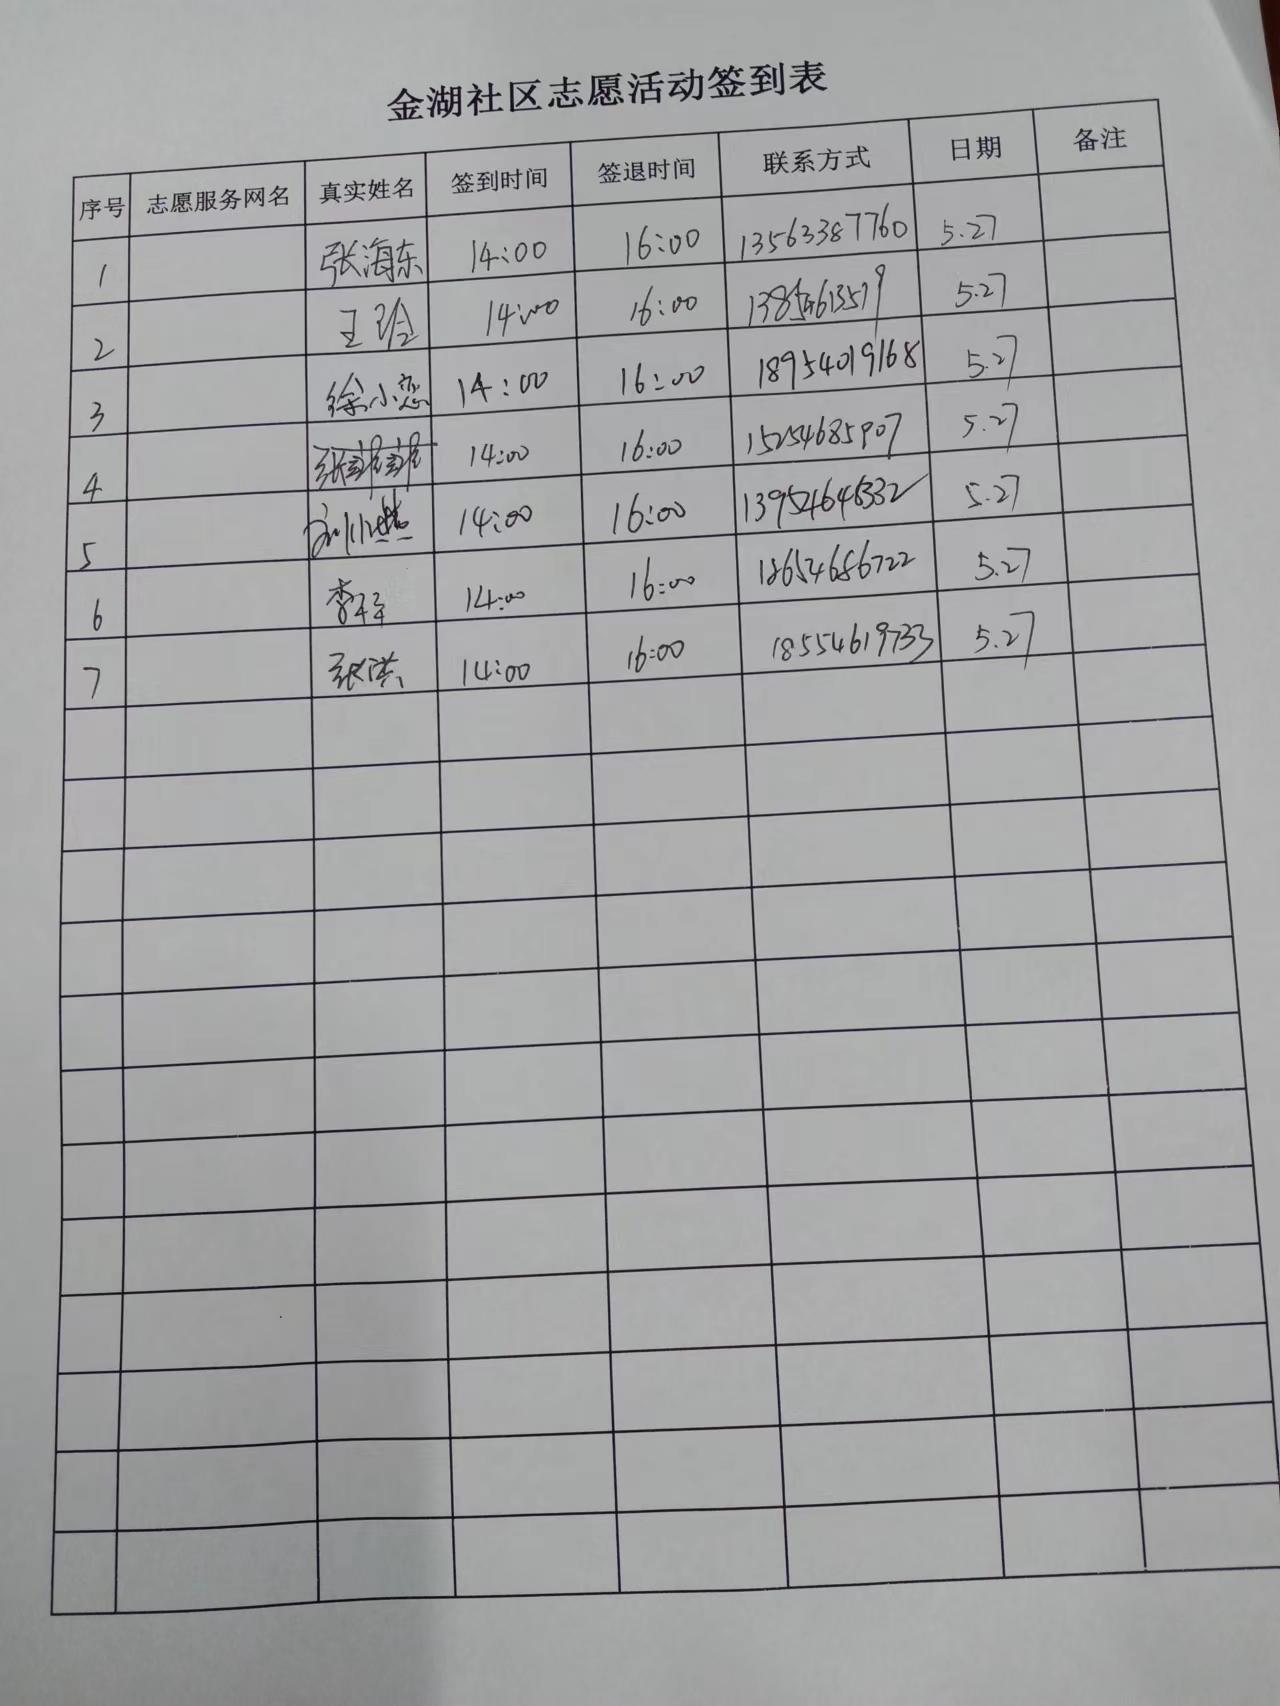 金湖社区志愿活动签到表
序号 志愿服务网名 真实姓名 签到时间 签退时间 联系方式 日期 备注
1 张海东 14:00 16:00 13563387760 5.27
2 王玲 14:00 16:00 5.27
3 徐小恋 14:00 16:00 18954019168 5.27
4 14:00 16:00 15254685907 5.27
5 14:00 16:00 5.27
6 14:00 16:00 18654686722 5.27
7 张洪 14:00 16:00 18554619733 5.27